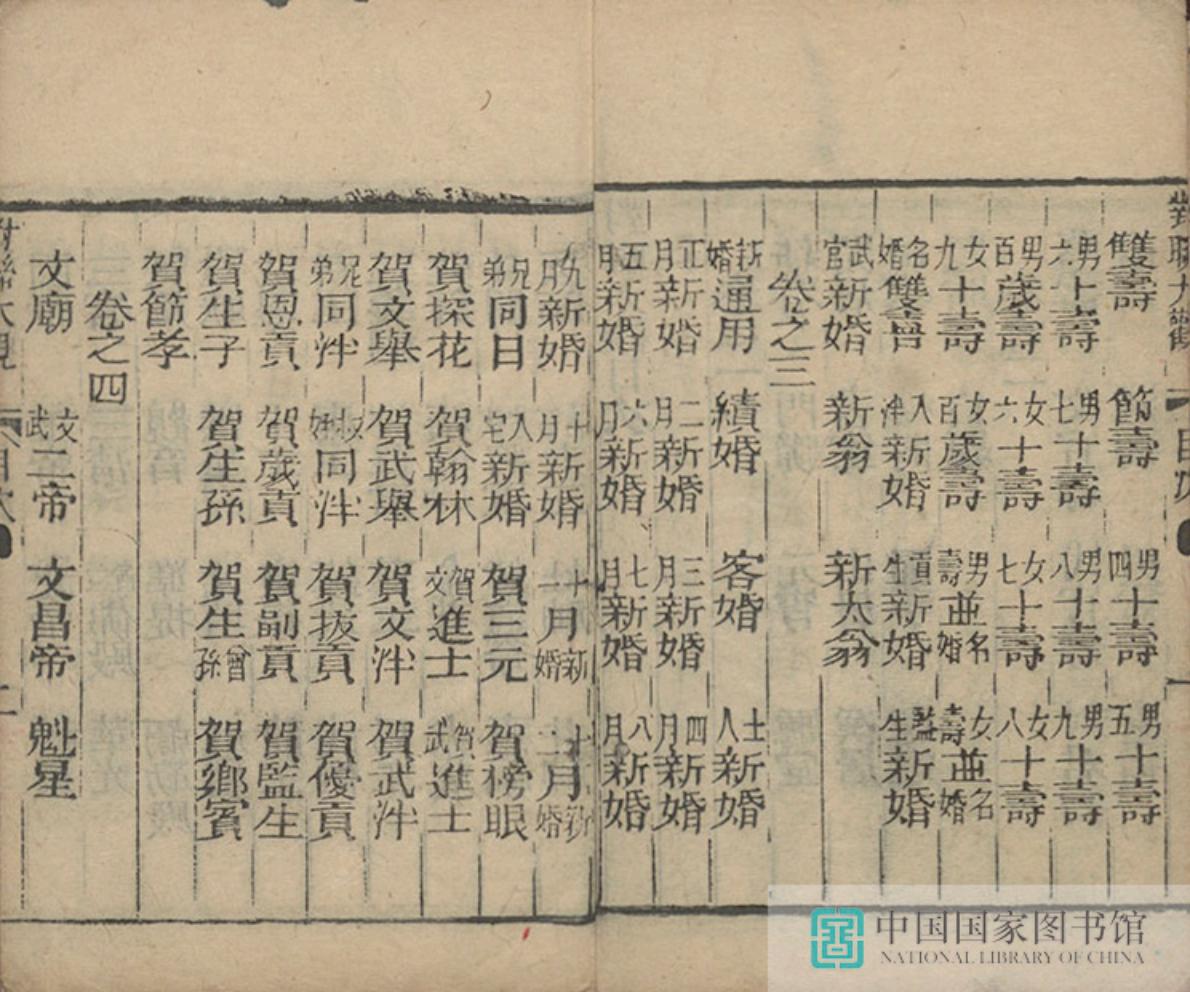 對聯大觀 目次 一
雙壽 節壽 男四十壽 男五十壽
男六十壽 男七十壽 男八十壽 男九十壽
男百歲壽 女六十壽 女七十壽 女八十壽
女九十壽 女百歲壽 男壽並名婚 女壽並名婚
名婚雙喜 入泮新婚 貢生新婚 監生新婚
武官新婚 新翁 新太翁
卷之三
新婚通用 續婚 客婚 士人新婚
正月新婚 二月新婚 三月新婚 四月新婚
五月新婚 六月新婚 七月新婚 八月新婚
九月新婚 十月新婚 十一月新婚 十二月新婚
兄弟同日 入宅新婚 賀三元 賀榜眼
賀探花 賀翰林 賀文進士 賀武進士
賀文舉 賀武舉 賀文泮 賀武泮
兄弟同泮 叔姪同泮 賀拔貢 賀優貢
賀恩貢 賀歲貢 賀副貢 賀監生
賀生子 賀生孫 賀生曾孫 賀鄉賓
賀節孝
卷之四
文廟 文武二帝 文昌帝 魁星
對聯大觀 目次 二
中国国家图书馆
NATIONAL LIBRARY OF CHINA